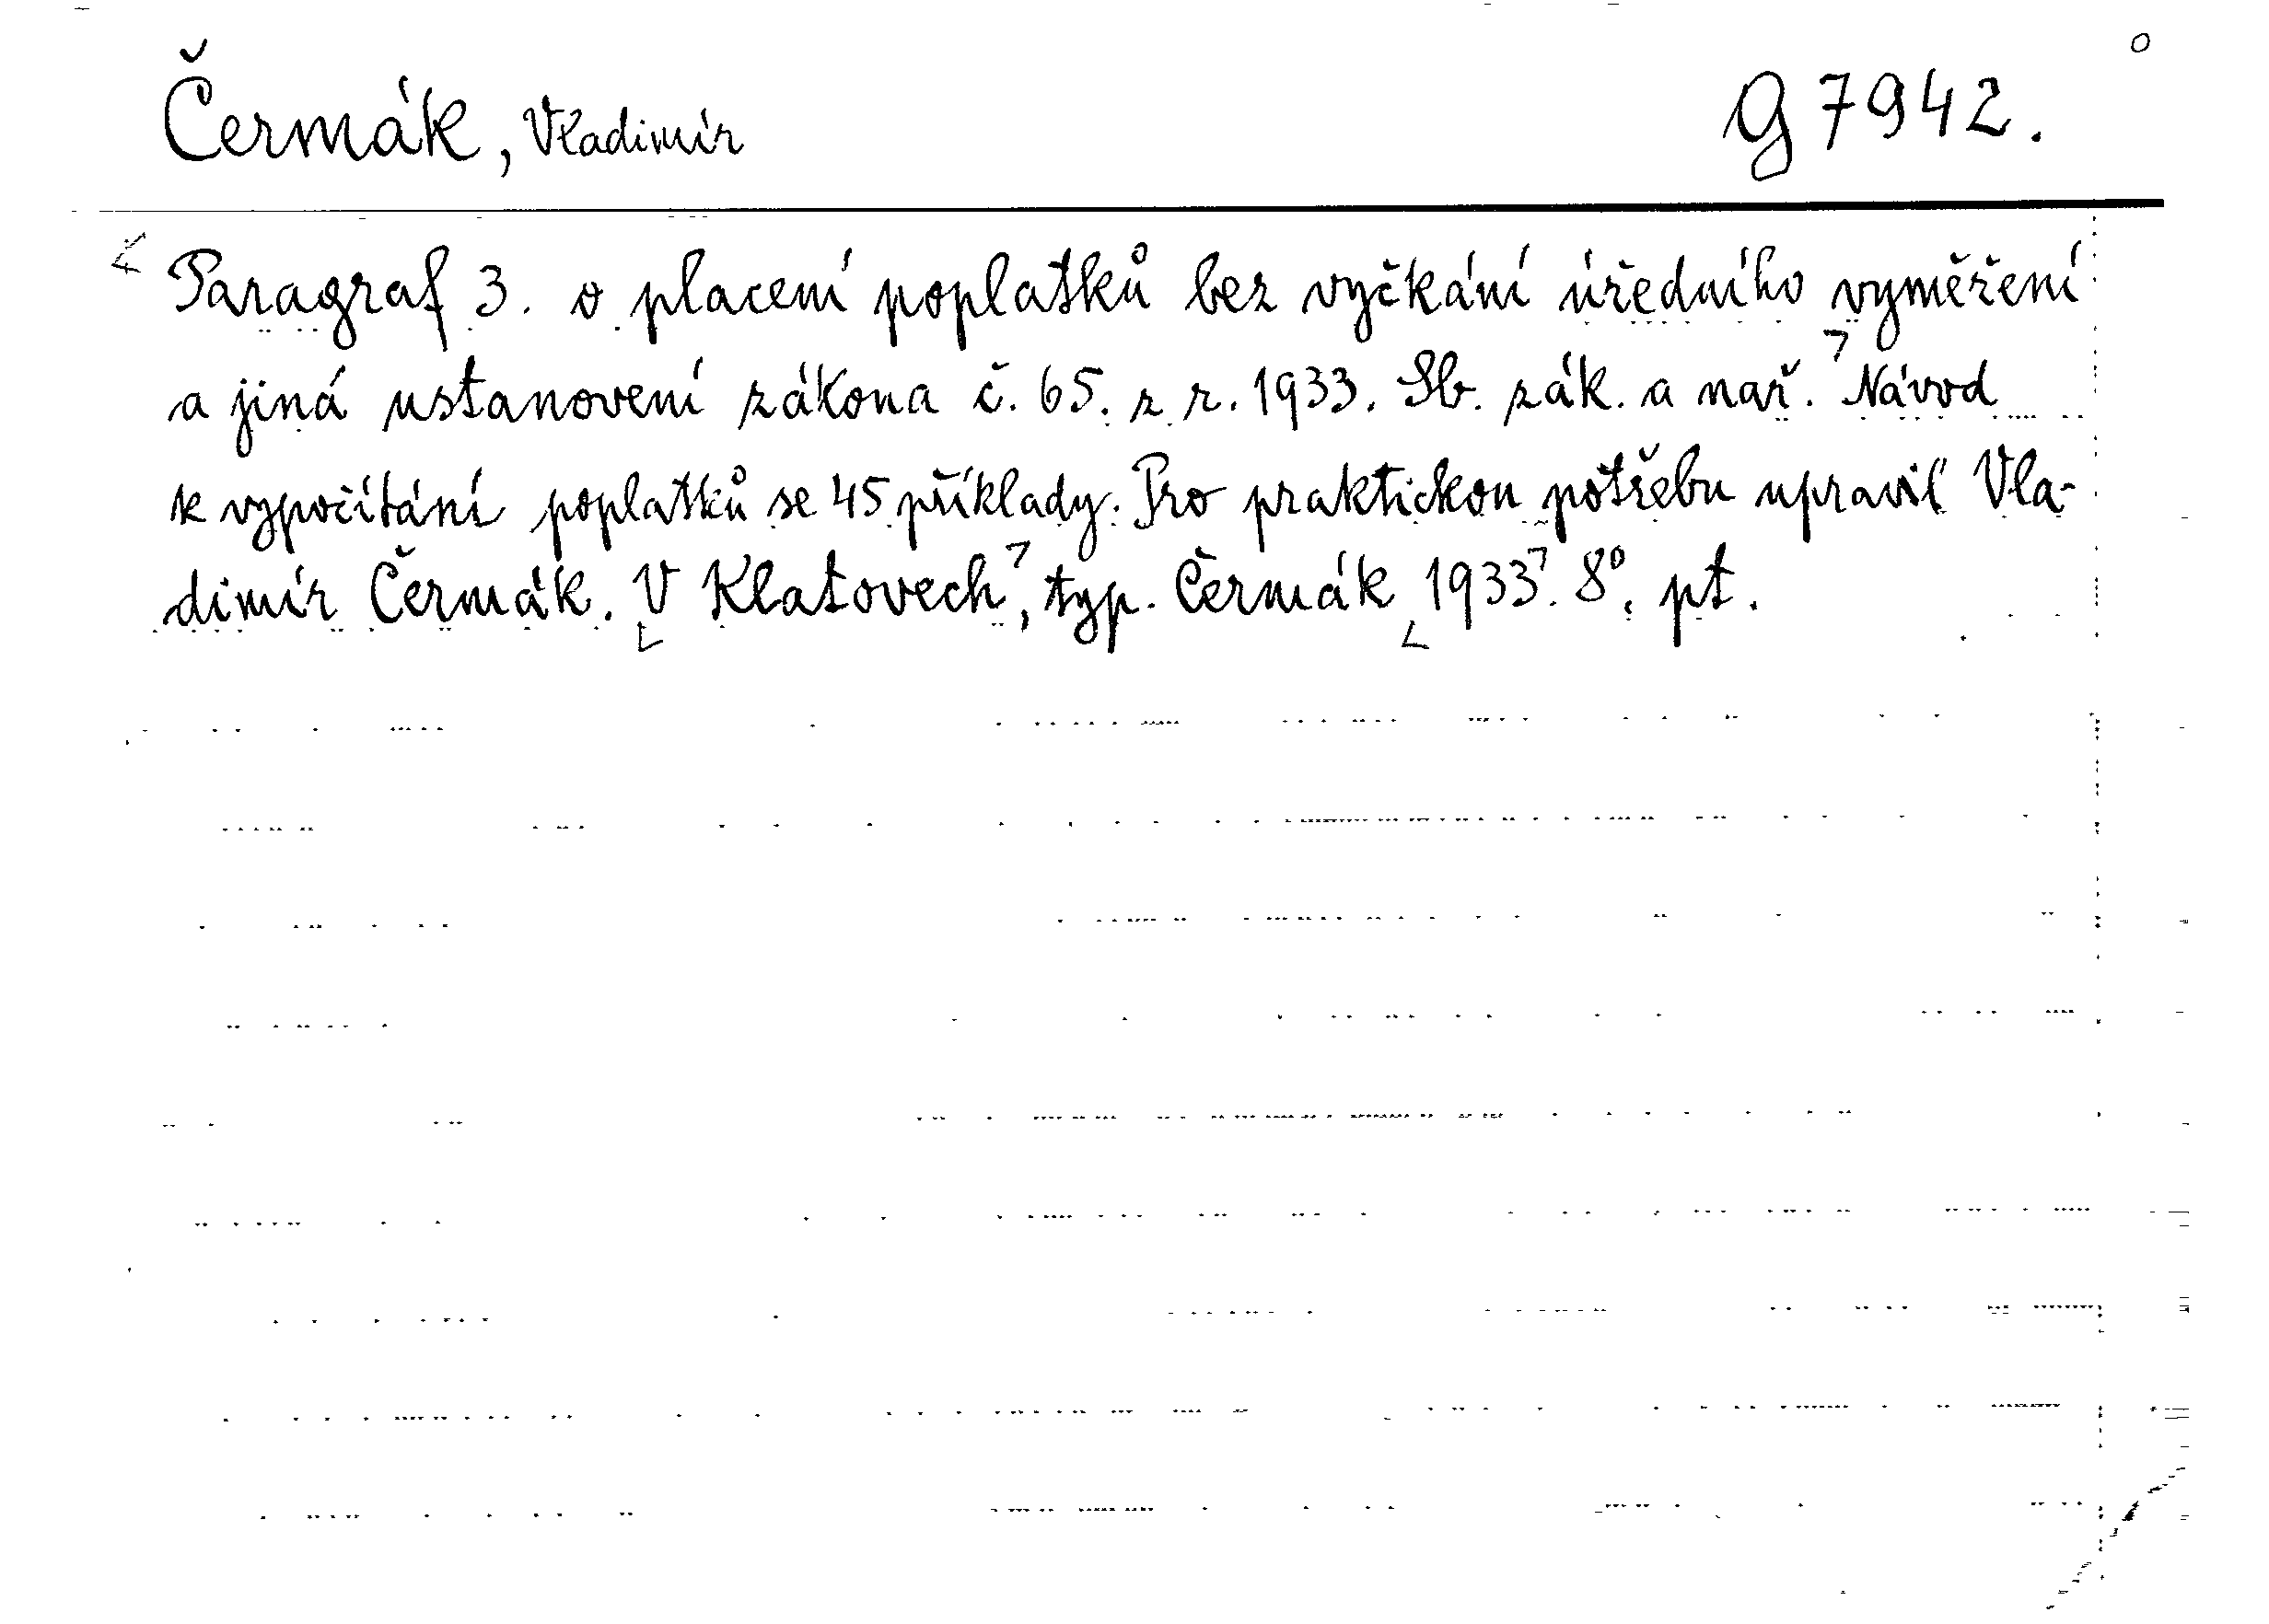 Čermák, Vladimír
g 7942.
Paragraf 3. o placení poplatků bez vyčkání úředního vyměření
a jiná ustanovení zákona č. 65. z r. 1933. Sb. zák. a nař. Návod
k vypočítání poplatků se 45 příklady. Pro praktickou potřebu upravil Vla-
dimír Čermák. V Klatovech, typ. Čermák 1933. 8°. pt.